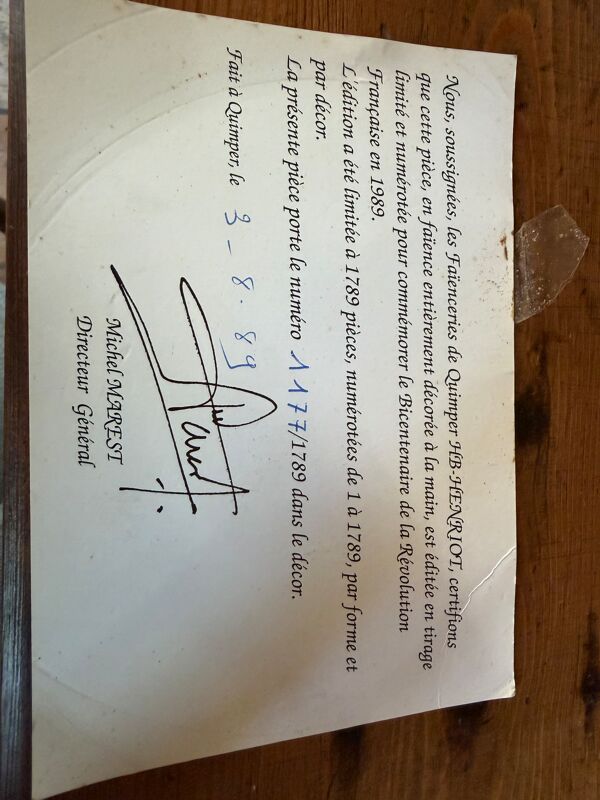 Nous, soussignées, les Faïenceries de Quimper HB-HENRIOT, certifions
que cette pièce, en faïence entièrement décorée à la main, est éditée en tirage
limité et numérotée pour commémorer le Bicentenaire de la Révolution
Française en 1989.
L'édition a été limitée à 1789 pièces, numérotées de 1 à 1789, par forme et
par décor.
La présente pièce porte le numéro 1177/1789 dans le décor.
Fait à Quimper, le 3-8.89
Michel MAREST
Directeur Général